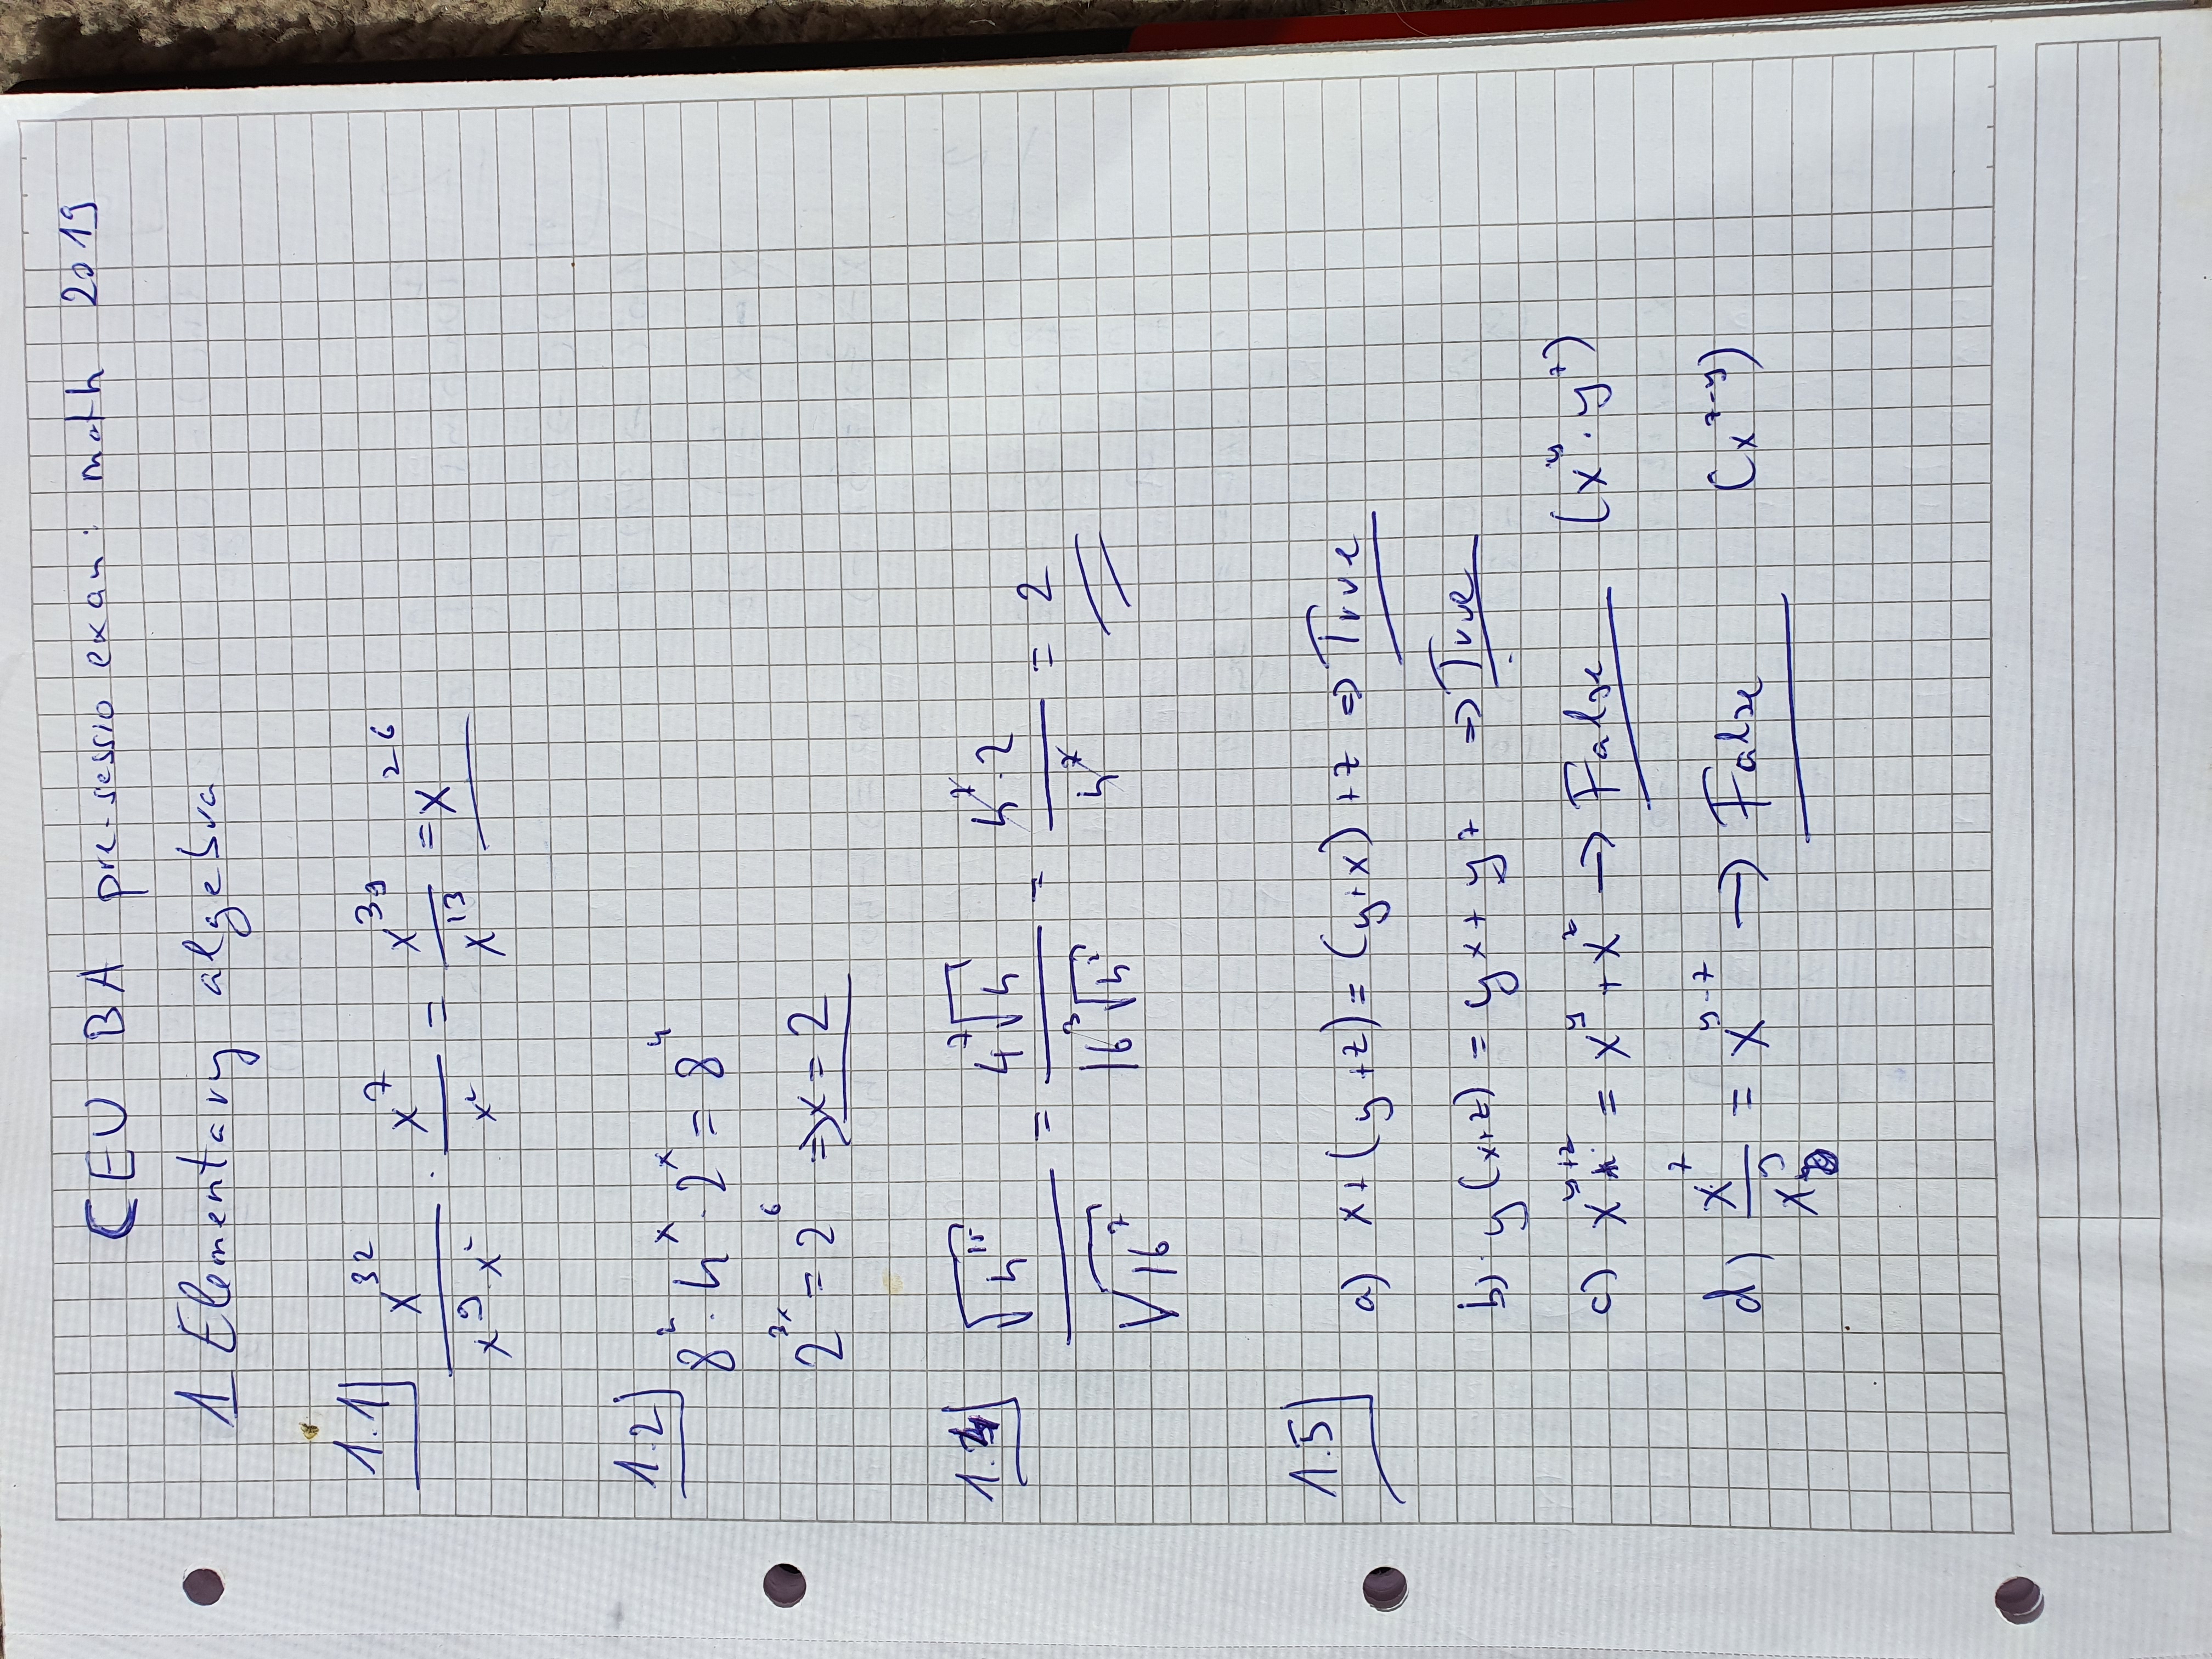 CEU BA pre-sessio exam: math 2019
1 Elementary algebra
1.1 x^32/(x^9 · x^2) · x^7/x^2 = x^39/x^13 = x^26
1.2
8^2 · 4^x · 2^x = 8^4
2^3x = 2^6 ⇒ x = 2
1.4 √(4^15)/√(16^7) = 4^7√4/(16^3√(4^2)) = 4^7·2/4^7 = 2
1.5
a) x+(y+z) = (y+x)+z ⇒ True
b) y(x+z) = yx + yz ⇒ True
c) x^(y+z) = x^y + x^z → False (x^y · y^z)
d) x^z/x^y = x^(y-z) → False (x^(z-y))